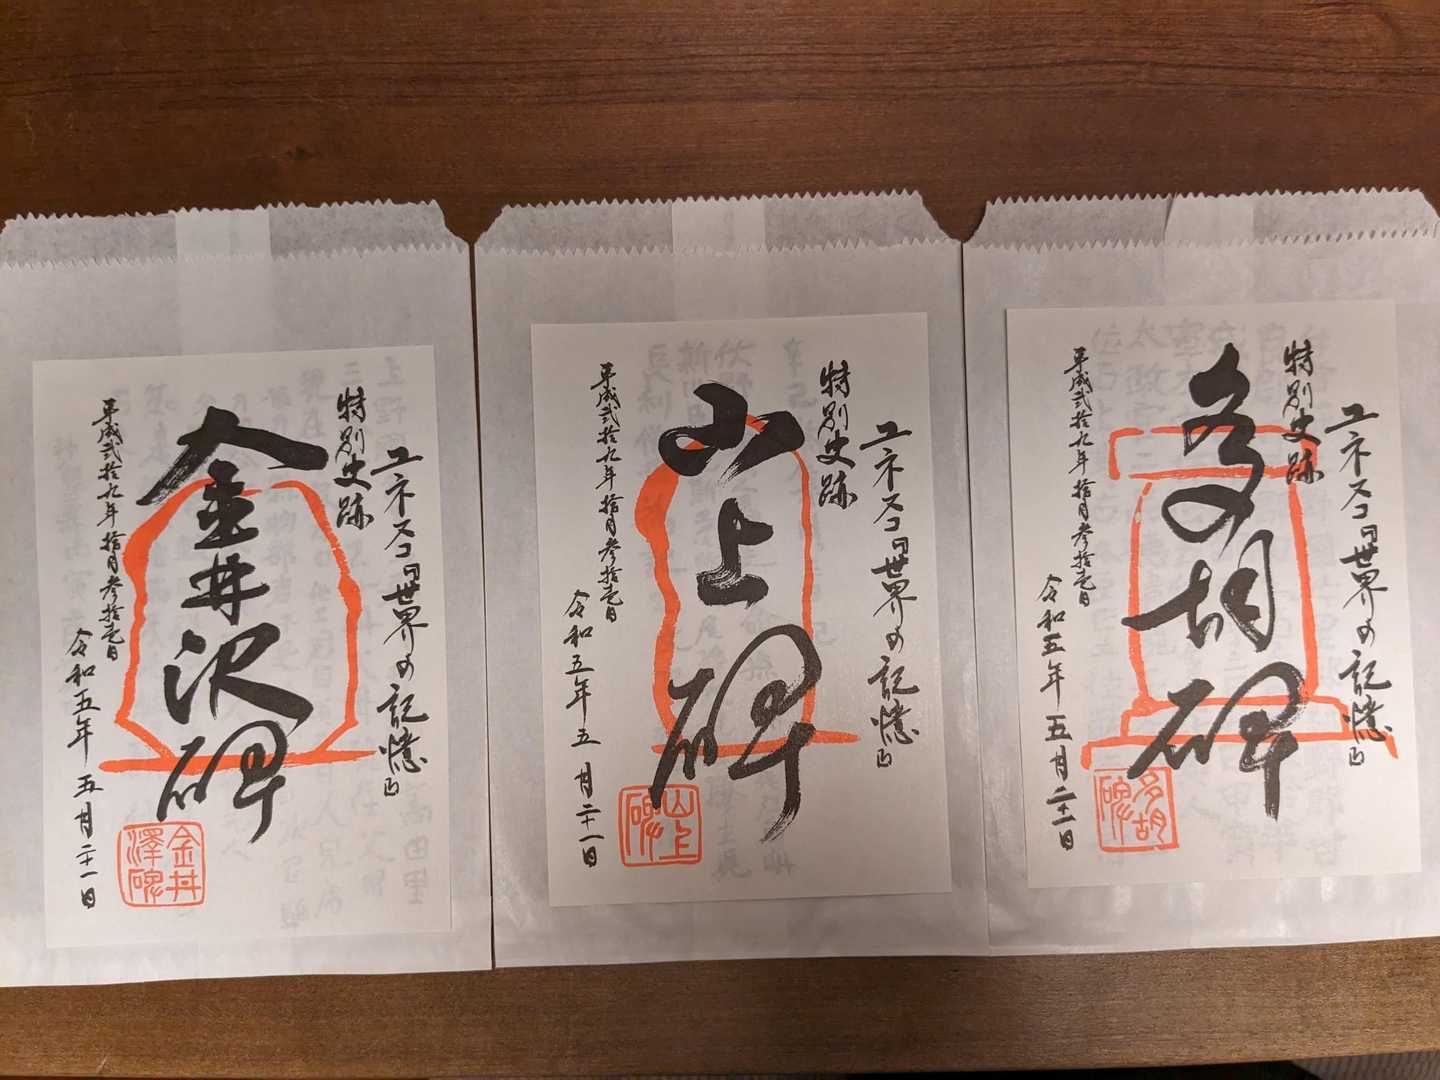 金井沢碑
ユネスコ「世界の記憶」
特別史跡
平成弐拾九年拾月参拾壱日
令和五年五月二十一日
金井澤碑
山上碑
ユネスコ「世界の記憶」
特別史跡
平成弐拾九年拾月参拾壱日
令和五年五月二十一日
山上碑
多胡碑
ユネスコ「世界の記憶」
特別史跡
平成弐拾九年拾月参拾壱日
令和五年五月二十一日
多胡碑